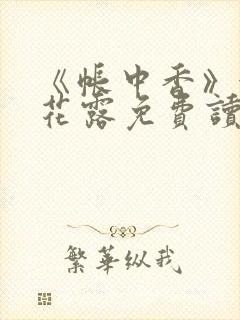 《帳中香》
花露免費讀
繁華纵我